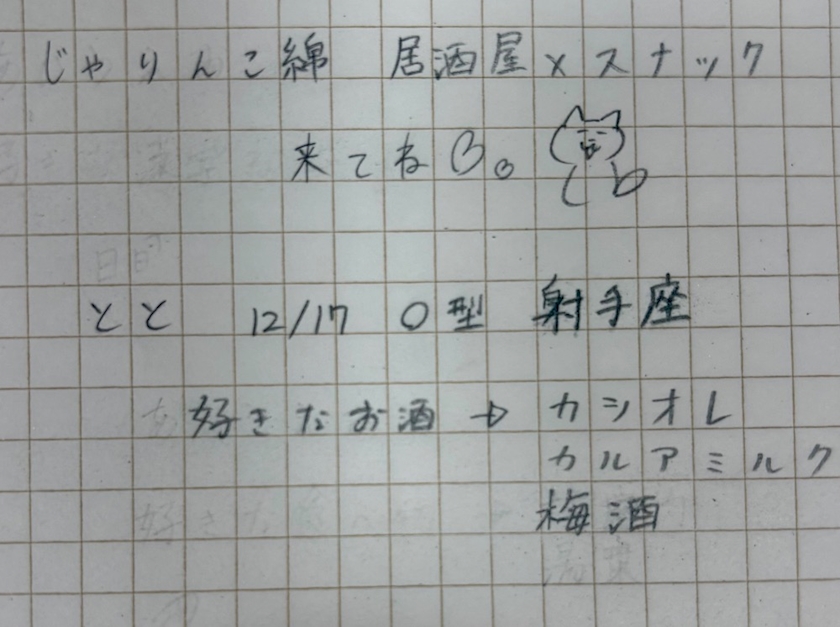 じゃりんこ綿 居酒屋×スナック
来てね
とと 12/17 O型 射手座
好きなお酒→カシオレ
カルアミルク
梅酒